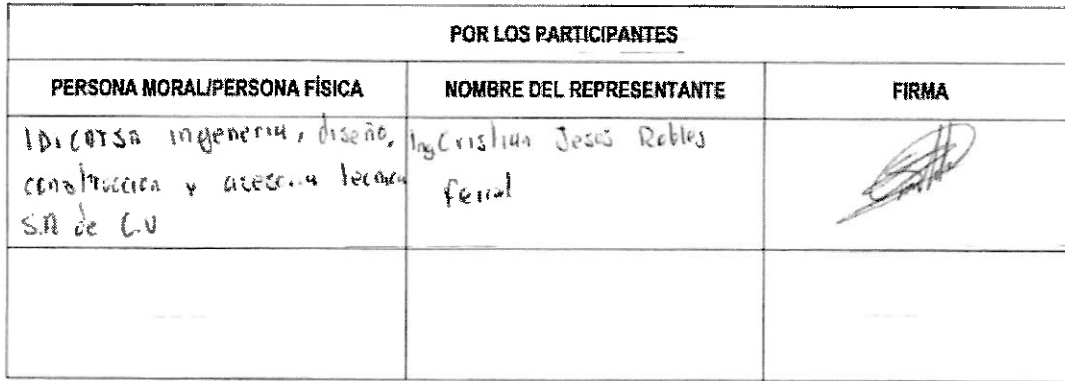 POR LOS PARTICIPANTES
PERSONA MORAL/PERSONA FÍSICA
NOMBRE DEL REPRESENTANTE
FIRMA
IDICATSA ingenieria, diseño,
construccion y asesoria tecnica
S.A de C.V
Ing Cristian Jesus Robles